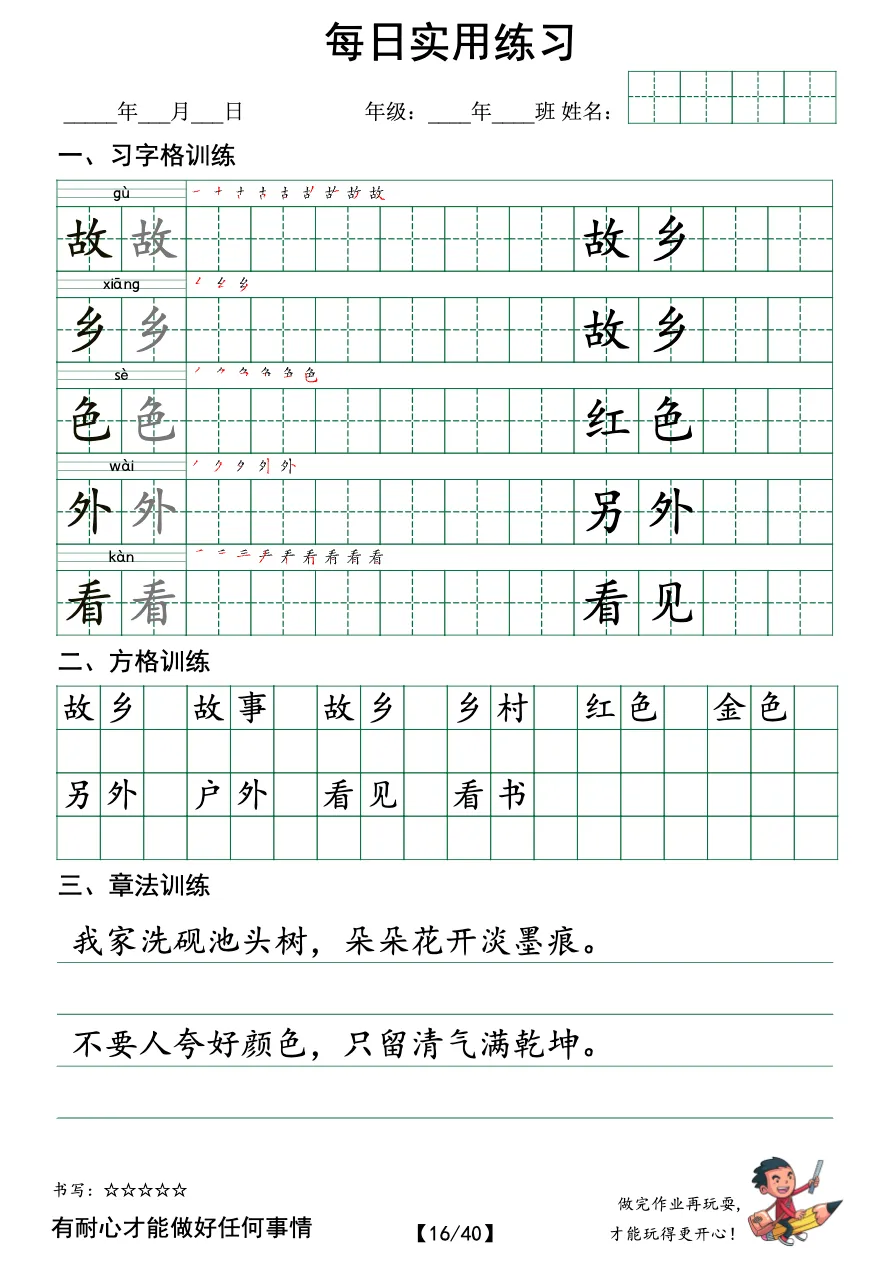 每日实用练习
_____年___月___日 年级：____年____班 姓名：
一、习字格训练
gù
故 故 故 乡
xiāng
乡 乡 故 乡
sè
色 色 红 色
wài
外 外 另 外
kàn
看 看 看 见
二、方格训练
故 乡 故 事 故 乡 乡 村 红 色 金 色
另 外 户 外 看 见 看 书
三、章法训练
我家洗砚池头树，朵朵花开淡墨痕。
不要人夸好颜色，只留清气满乾坤。
书写：☆☆☆☆☆
有耐心才能做好任何事情
【16/40】
做完作业再玩耍，
才能玩得更开心！